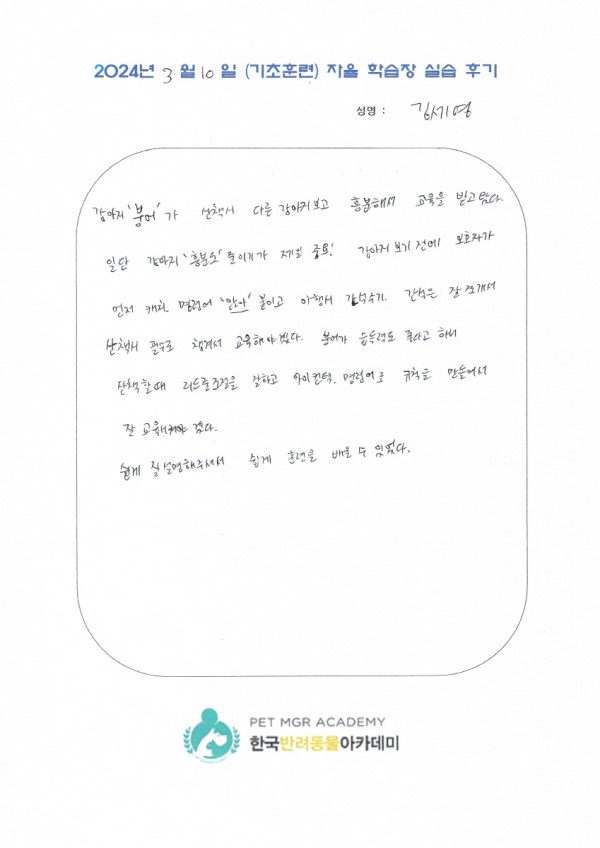 2024년 3 월 10 일 (기초훈련) 자율 학습장 실습 후기
성명 : 김세영
강아지 '붕어'가 산책시 다른 강아지보고 흥분해서 교육을 받고 왔다.
일단 강아지 '흥분도' 줄이기가 제일 중요! 강아지 보기 전에 보호자가
먼저 캐치. 명령어 '앉아' 붙이고 이행시 간식주기. 간식은 잘 쪼개서
산책시 필수로 챙겨서 교육해야겠다. 붕어가 습득력도 좋다고 하니
산책할때 리드줄조정을 잘하고 아이컨텍, 명령어로 규칙을 만들어서
잘 교육시켜야 겠다.
쉽게 잘 설명해주셔서 쉽게 훈련을 배울 수 있었다.
PET MGR ACADEMY
한국반려동물아카데미